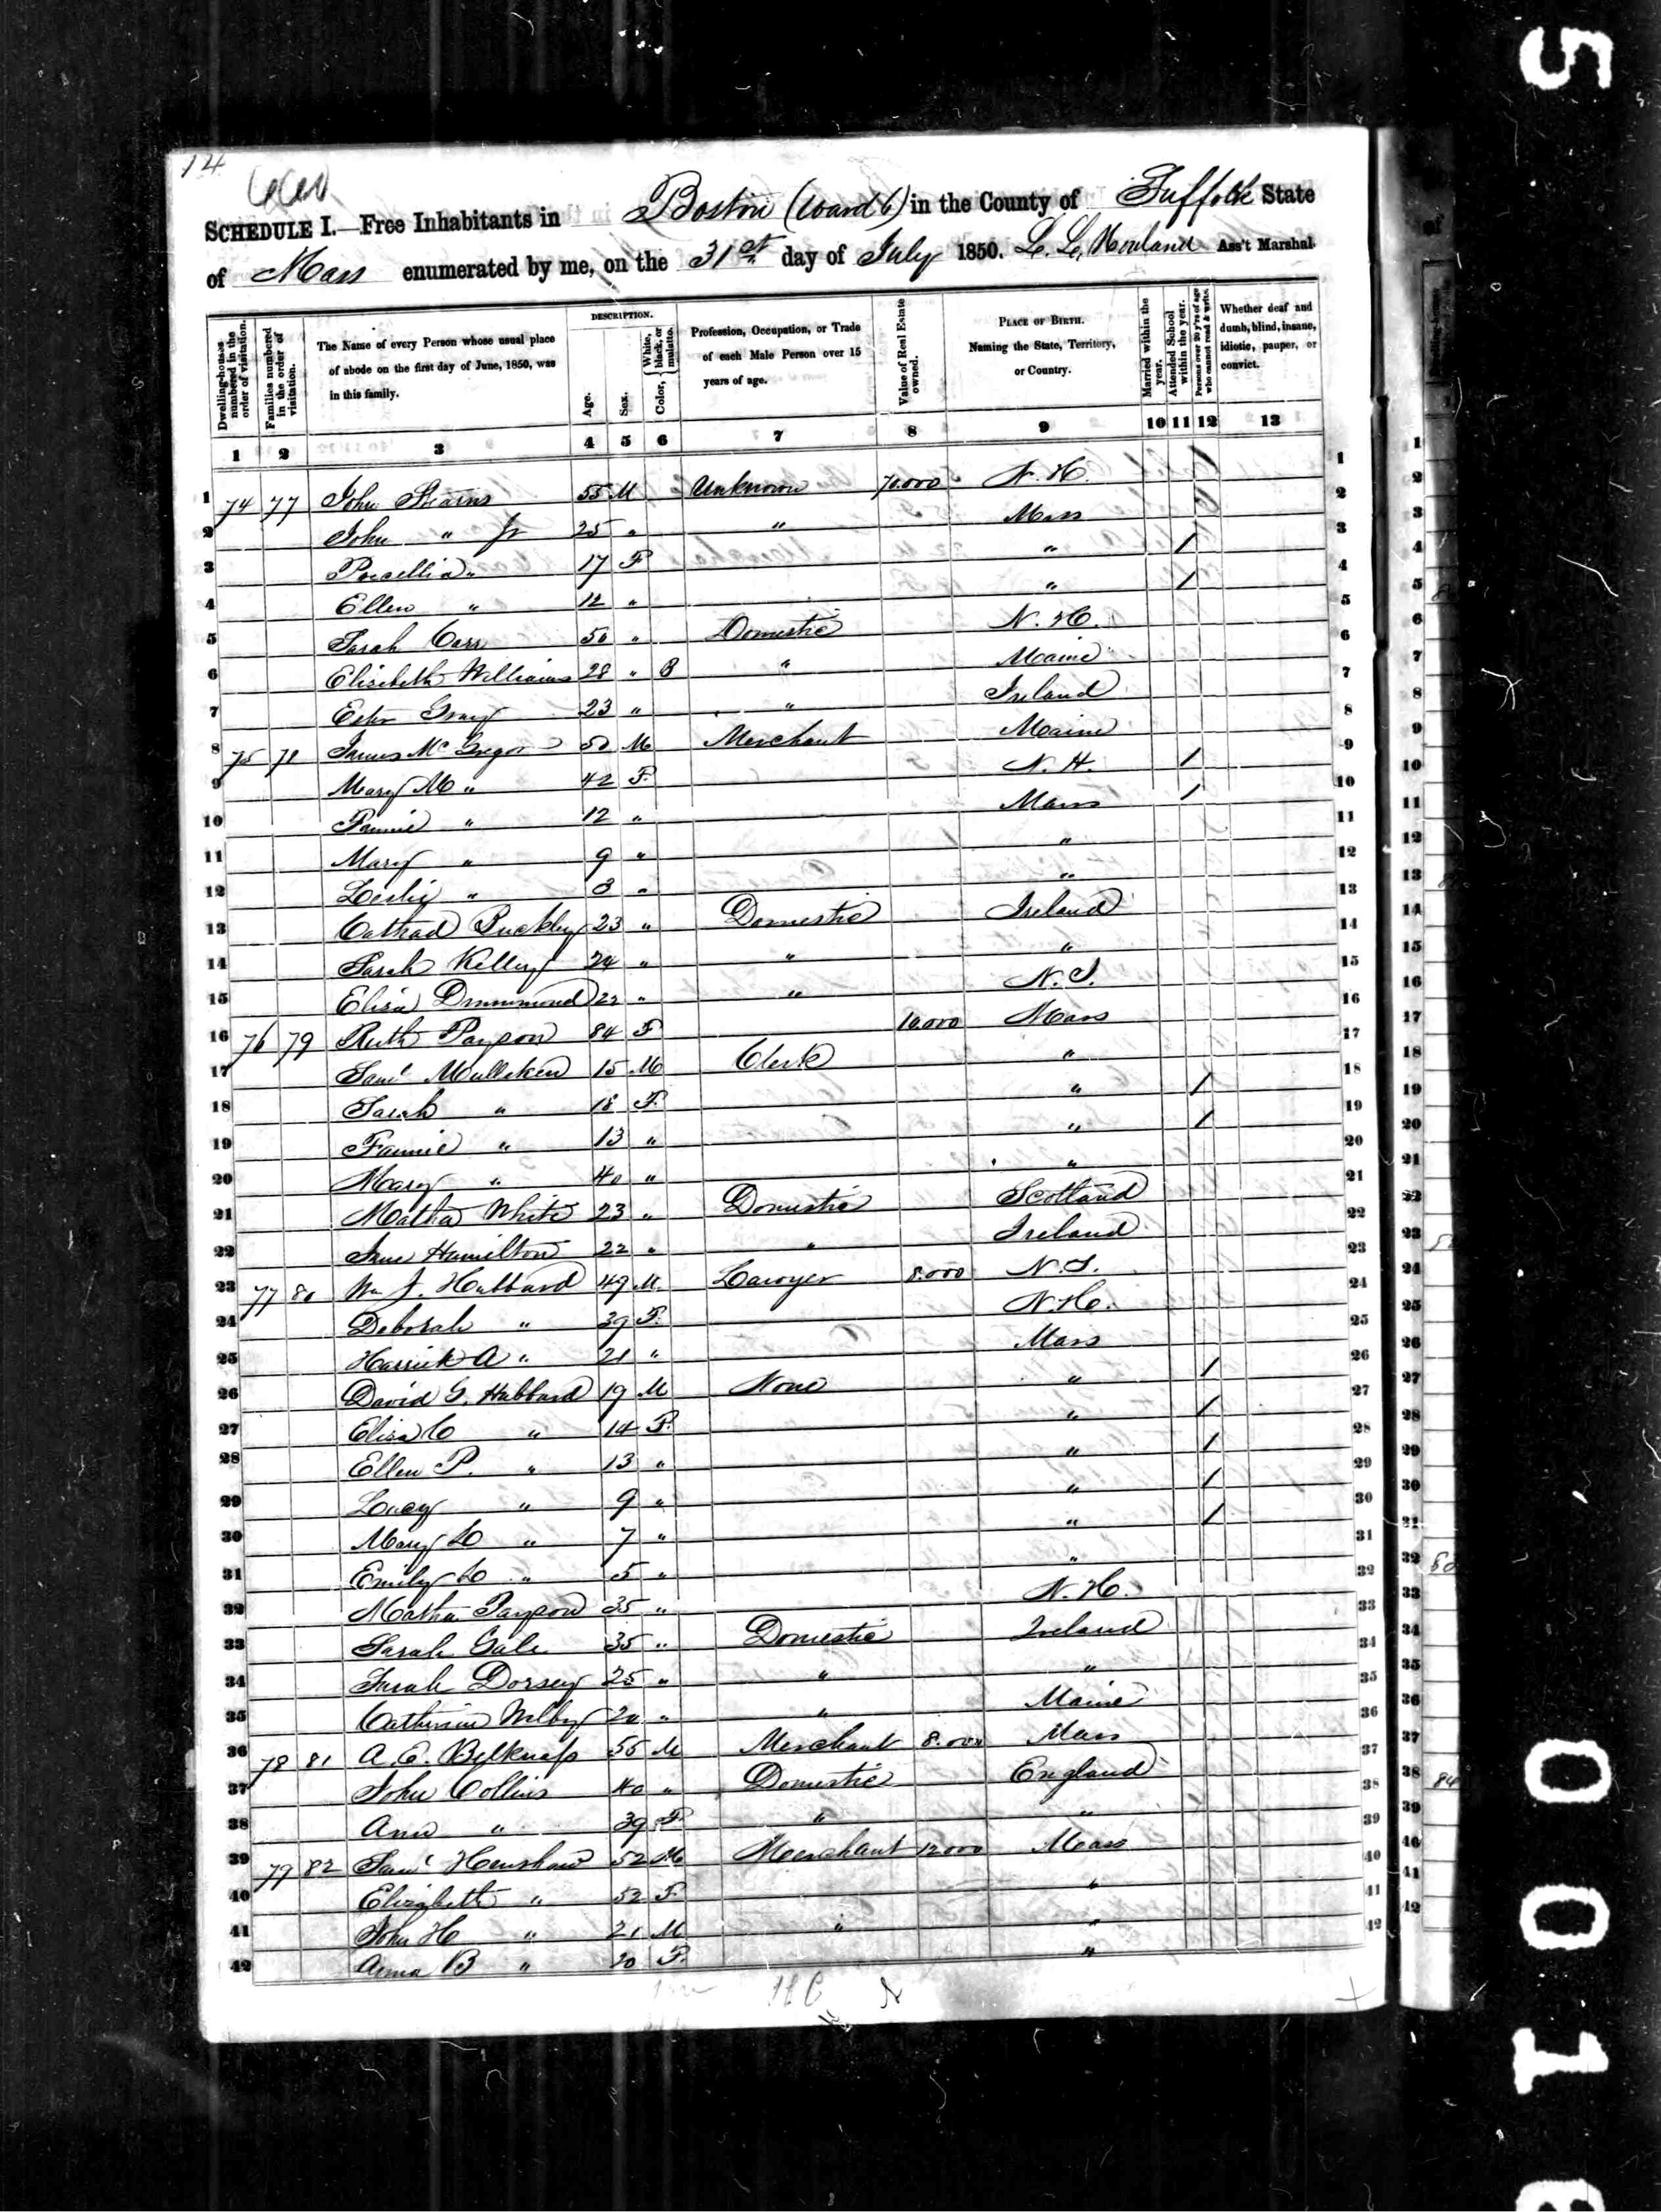 14
SCHEDULE I.—Free Inhabitants in Boston (Ward 6) in the County of Suffolk State
of Mass enumerated by me, on the 31st day of July 1850. Ass't Marshal.
Dwelling-houses numbered in the order of visitation.
Families numbered in the order of visitation.
The Name of every Person whose usual place of abode on the first day of June, 1850, was in this family.
DESCRIPTION.
Age.
Sex.
Color, White, black, or mulatto.
Profession, Occupation, or Trade of each Male Person over 15 years of age.
Value of Real Estate owned.
PLACE OF BIRTH. Naming the State, Territory, or Country.
Married within the year.
Attended School within the year.
Persons over 20 y'rs of age who cannot read & write.
Whether deaf and dumb, blind, insane, idiotic, pauper, or convict.
1 2 3 4 5 6 7 8 9 10 11 12 13
1 74 77 John Stearns 55 M Unknown 70.000 N. H. 1
2 John " Jr 25 " " Mass 2
3 " 17 F " 1 3
4 Ellen " 12 " " 1 4
5 Sarah Carr 50 " Domestic N. H. 5
6 Elisebeth Williams 28 " B " Maine 6
7 Gray 23 " " Ireland 7
8 75 78 James McGregor 50 M Merchant Maine 8
9 Mary M " 42 F. N. H. 1 9
10 Fannie " 12 " Mass 1 10
11 Mary " 9 " " 11
12 Leslie " 3 " " 12
13 23 " Domestic Ireland 13
14 Sarah Kelley 24 " " " 14
15 Eliza Drummond 22 " " N. S. 15
16 76 79 Ruth Payson 84 F 10.000 Mass 16
17 Saml Mulleken 15 M Clerk " 17
18 Sarah " 18 F. " 1 18
19 Fannie " 13 " " 1 19
20 Mary " 40 " " 20
21 Matha White 23 " Domestic Scotland 21
22 Jane Hamilton 22 " " Ireland 22
23 77 80 Wm J. Hubbard 49 M. Lawyer 8.000 N. S. 23
24 Deborah " 39 F. N. H. 24
25 A " 21 " Mass 25
26 David G. Hubbard 19 M None " 1 26
27 Eliza C " 14 F. " 1 27
28 Ellen P. " 13 " " 1 28
29 Lucy " 9 " " 1 29
30 Mary " 7 " " 1 30
31 Emily " 5 " " 31
32 Matha Payson 35 " N. H. 32
33 Sarah Gale 35 " Domestic Ireland 33
34 Sarah Dorsey 25 " " " 34
35 Catherine 20 " " Maine 35
36 78 81 A. E. Belknap 55 M Merchant 8.000 Mass 36
37 John Collins 40 " Domestic England 37
38 Ann " 39 F. " " 38
39 79 82 Saml Henshaw 52 M Merchant 12000 Mass 39
40 Elizabeth " 52 F. " 40
41 John H " 21 M " " 41
42 Anna B " 20 F. " 42